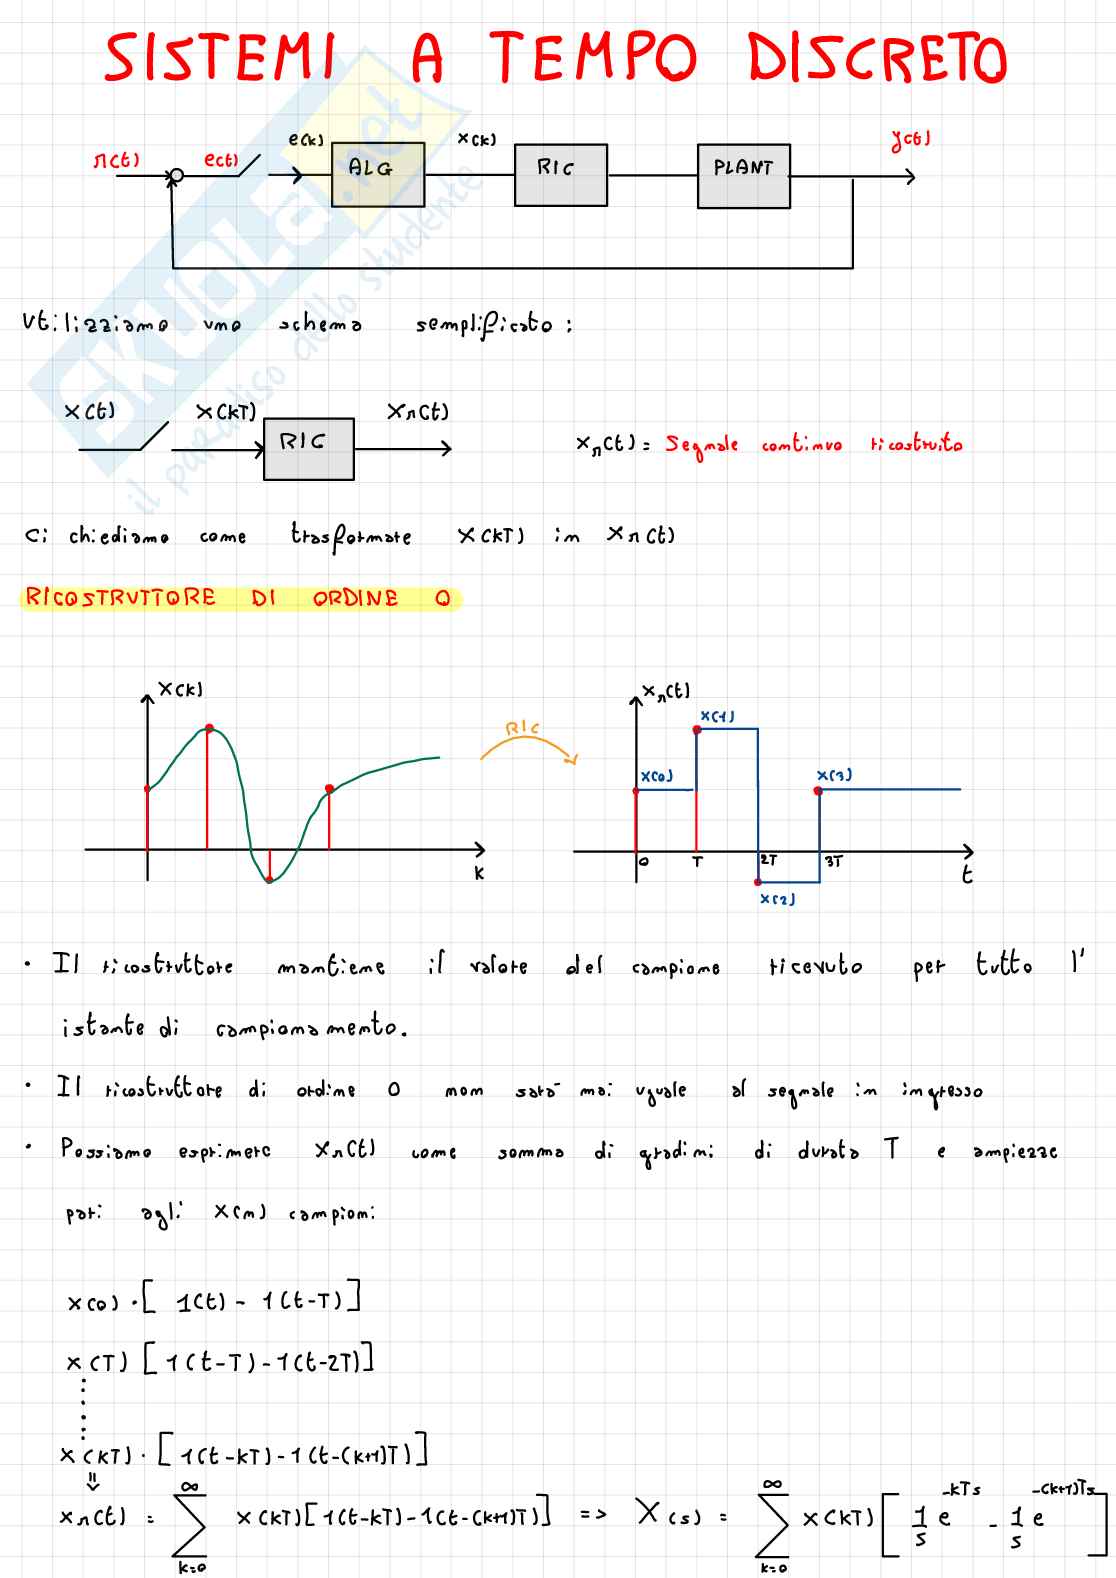 SISTEMI A TEMPO DISCRETO
r(t) e(t) e(k) ALG x(k) RIC PLANT y(t)
Utilizziamo uno schema semplificato :
x(t) x(kT) RIC xr(t) xr(t) = Segnale continuo ricostruito
Ci chiediamo come trasformare x(kT) in xr(t)
RICOSTRUTTORE DI ORDINE 0
x(k) k RIC xr(t) x(0) x(1) x(2) x(3) 0 T 2T 3T t
• Il ricostruttore mantiene il valore del campione ricevuto per tutto l'
istante di campionamento.
• Il ricostruttore di ordine 0 non sarà mai uguale al segnale in ingresso
• Possiamo esprimere xr(t) come somma di gradini di durata T e ampiezze
pari agli x(n) campioni
x(0) · [ 1(t) - 1(t-T) ]
x(T) [ 1(t-T) - 1(t-2T) ]
x(kT) · [ 1(t-kT) - 1(t-(k+1)T) ]
⇓
xr(t) = ∑_{k=0}^{∞} x(kT) [ 1(t-kT) - 1(t-(k+1)T) ] => X(s) = ∑_{k=0}^{∞} x(kT) [ 1/s e^{-kTs} - 1/s e^{-(k+1)Ts} ]
SKUOLA.net
il paradiso dello studente